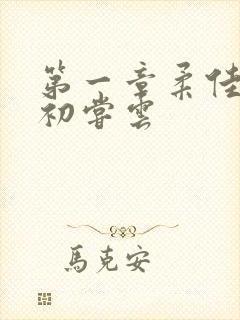 第一章柔佳
初尝雲
馬克安